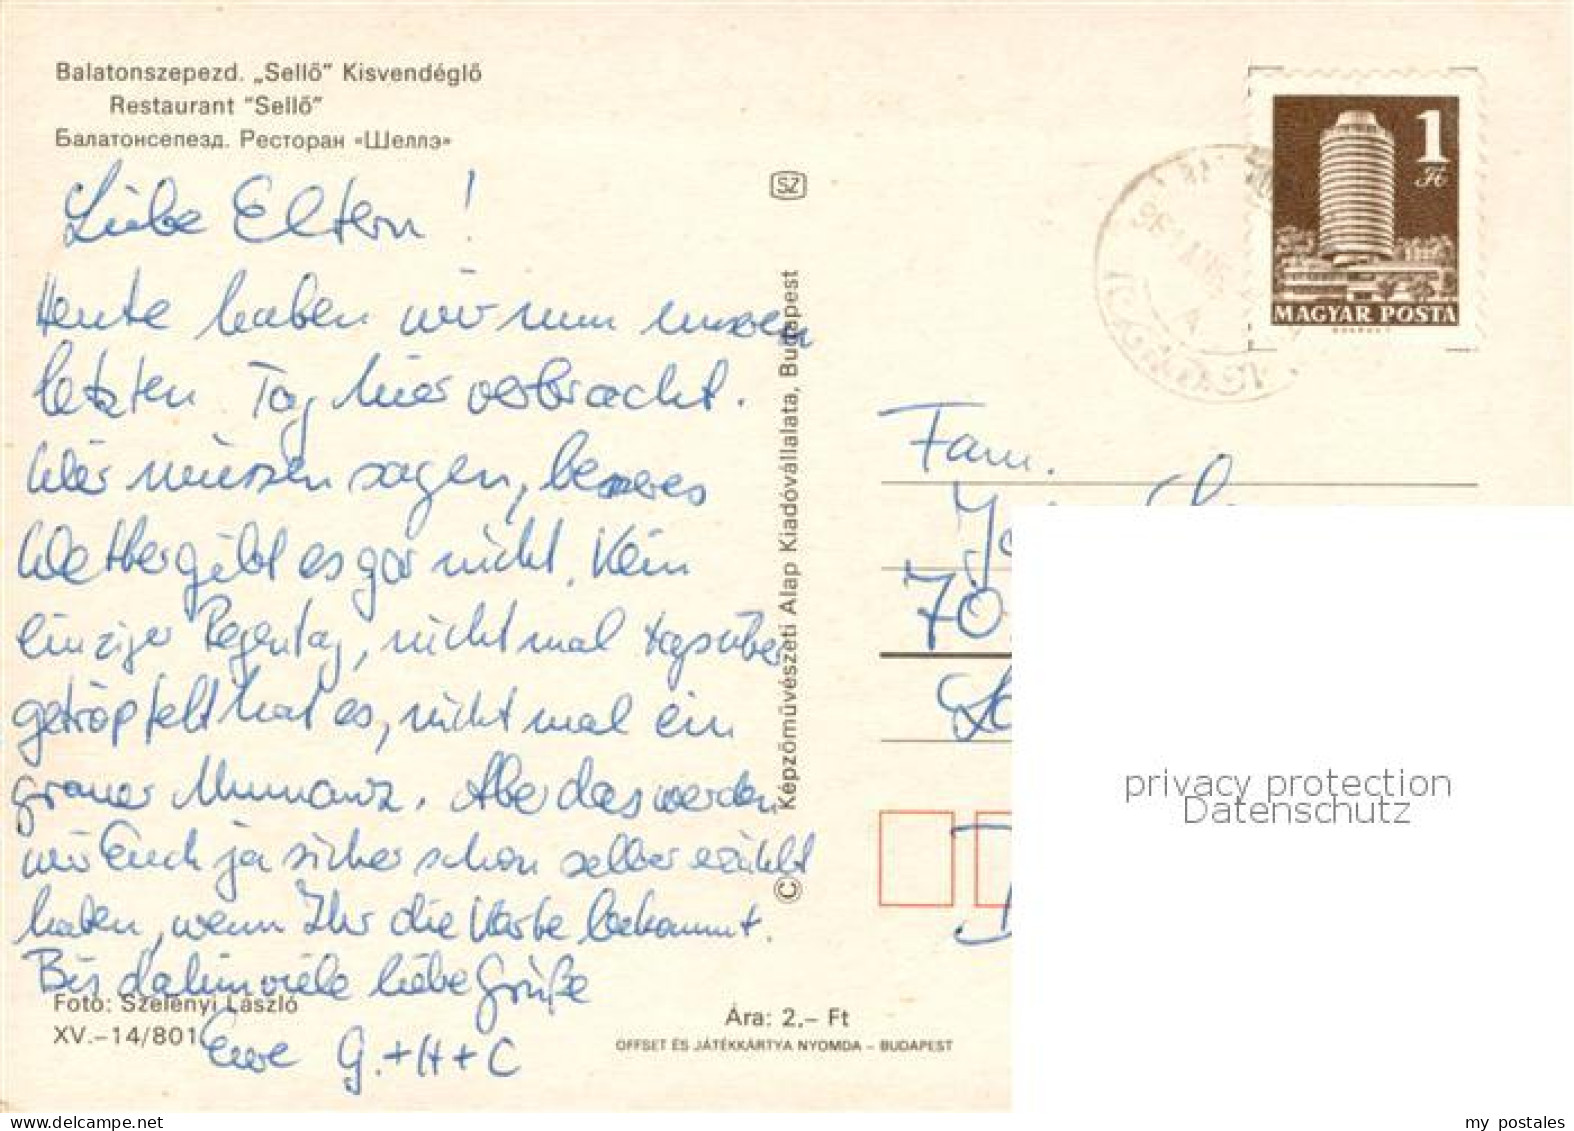 Balatonszepezd. „Sellő" Kisvendéglő
Restaurant "Sellő"
Балатонсепезд. Ресторан «Шеллэ»
Liebe Eltern!
Heute haben wir nun unseren
letzten Tag hier verbracht.
Wir müssen sagen, besseres
Wetter gibt es gar nicht. Kein
einziger Regentag, nicht mal tagsüber
getröpfelt hat es, nicht mal ein
grauer
Aber das werden
wir Euch ja sicher schon selber erzählt
haben, wenn Ihr die Karte bekommt.
Bis dahin viele liebe Grüße
Eure G.+H+C
Foto: Szelényi László
XV.–14/801
SZ
© Képzőművészeti Alap Kiadóvállalata, Budapest
Ára: 2,– Ft
OFFSET ÉS JÁTÉKKÁRTYA NYOMDA – BUDAPEST
1
Ft
MAGYAR POSTA
BUDAPEST
Fam.
70
D
privacy protection
Datenschutz
my postales